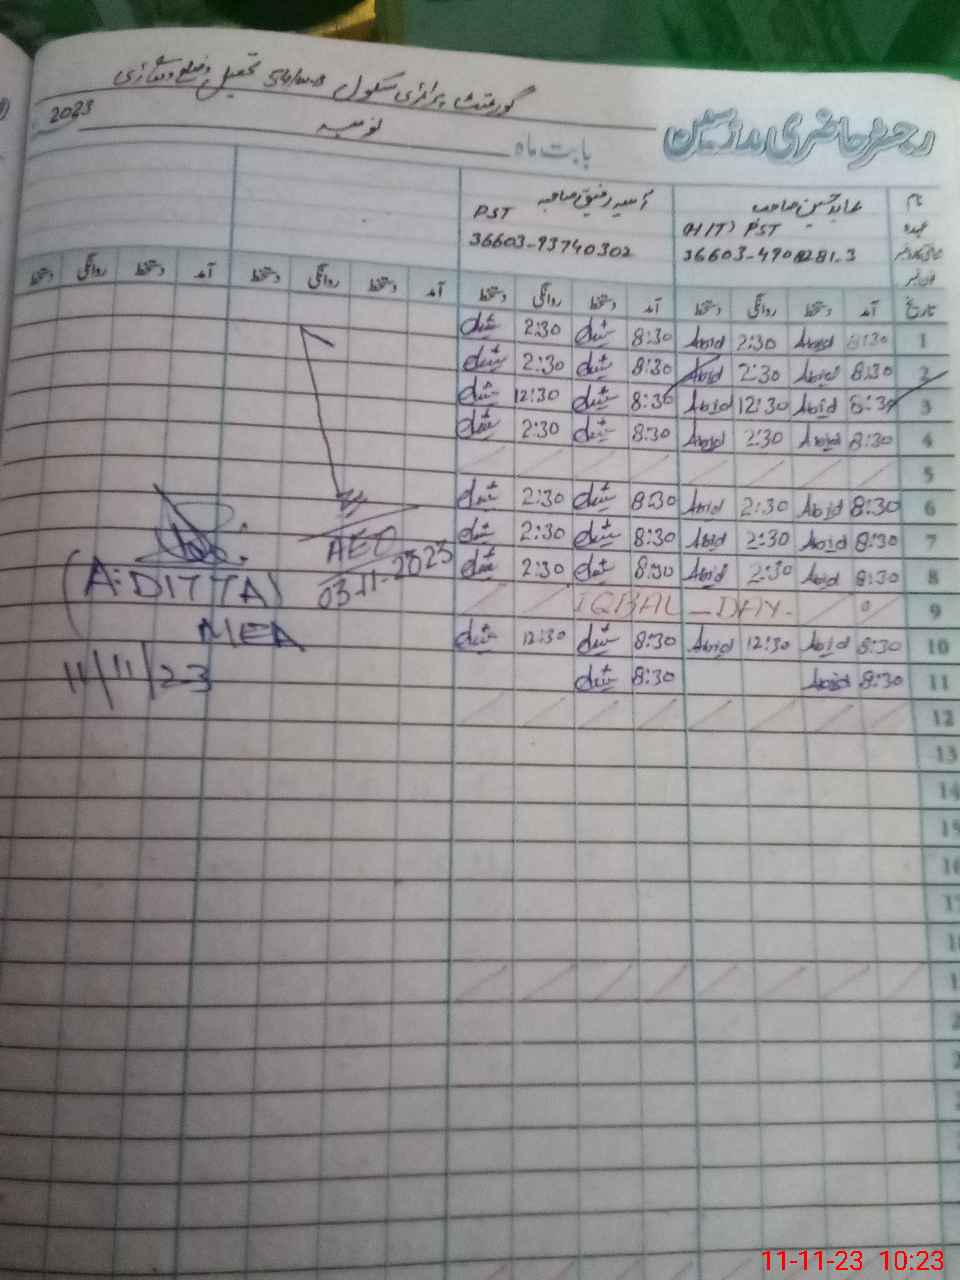 گورنمنٹ پرائمری سکول 54/W.B تحصیل و ضلع وہاڑی
رجسٹر حاضری مدرسین
بابت ماہ نومبر 2023
نام عابد حسین صاحب آسیہ رفیق صاحبہ
عہدہ (H/T) PST PST
36603-93740302
تاریخ آمد دستخط روانگی دستخط آمد دستخط روانگی دستخط آمد دستخط روانگی دستخط آمد دستخط روانگی دستخط
1 8:30 Abid 2:30 Abid 8:30 2:30
2 8:30 Abid 2:30 Abid 8:30 2:30
3 8:30 Abid 12:30 Abid 8:30 12:30
4 8:30 Abid 2:30 Abid 8:30 2:30
5
6 8:30 Abid 2:30 Abid 8:30 2:30
7 8:30 Abid 2:30 Abid 8:30 2:30
8 8:30 Abid 2:30 Abid 8:30 2:30
9 IQBAL - DAY -
10 8:30 Abid 12:30 Abid 8:30 12:30
11 8:30 Abid 8:30
12
13
14
15
16
AEO
03-11-2023
(A:DITTA)
MEA
11/11/23
11-11-23 10:23